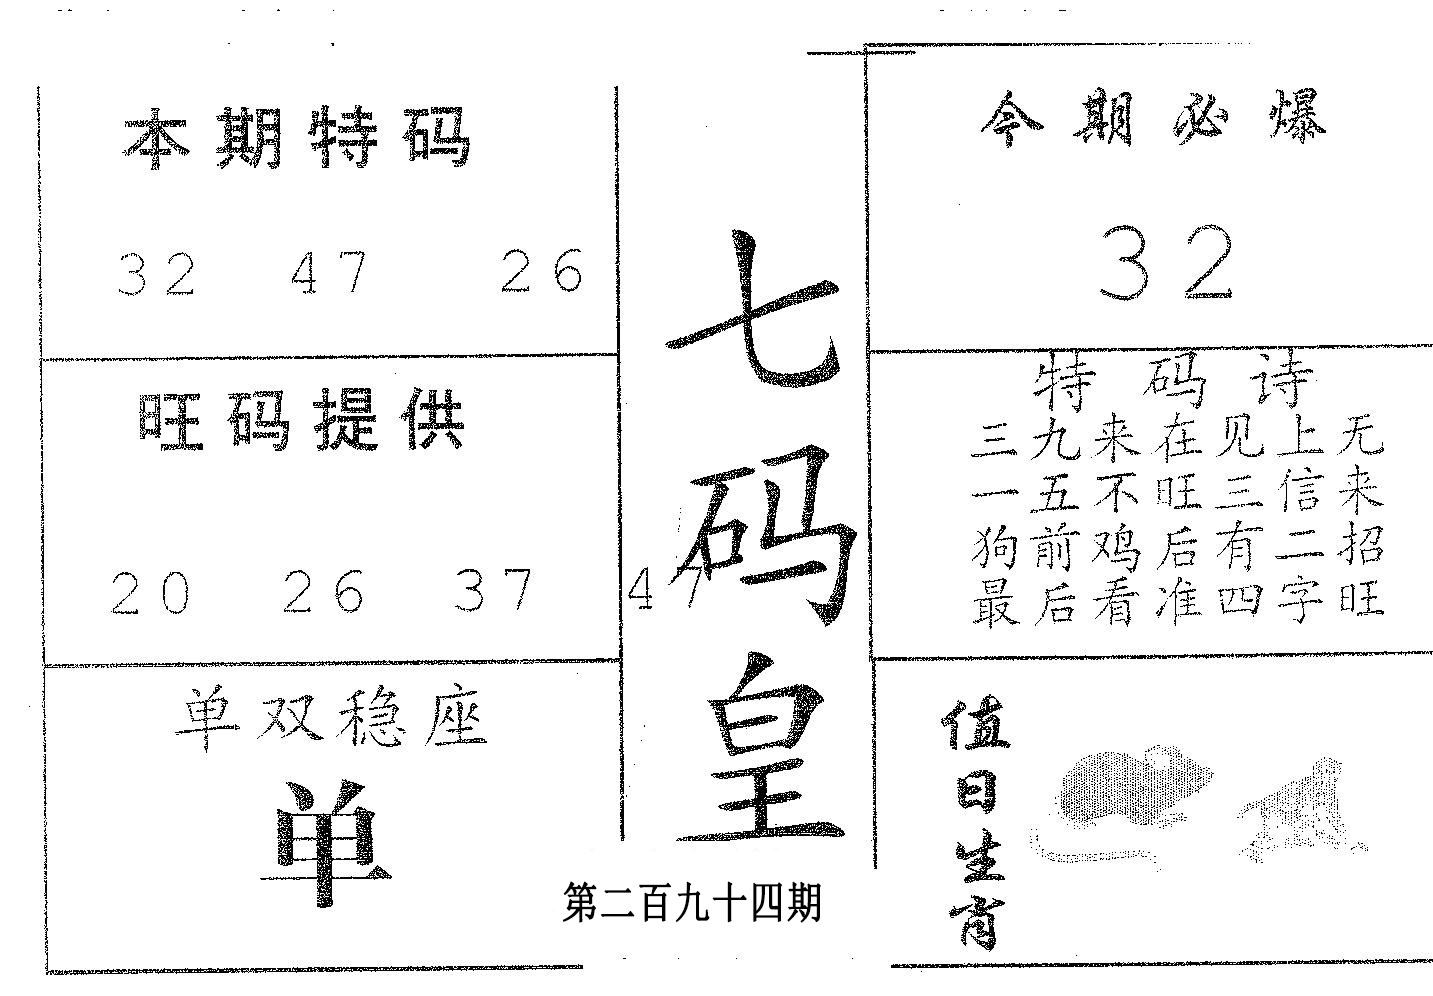 本期特码
32 47 26
旺码提供
20 26 37 47
单双稳座
单
七码皇
第二百九十四期
今期必爆
32
特码诗
三九来在见上无
一五不旺三信来
狗前鸡后有二招
最后看准四字旺
值日生肖